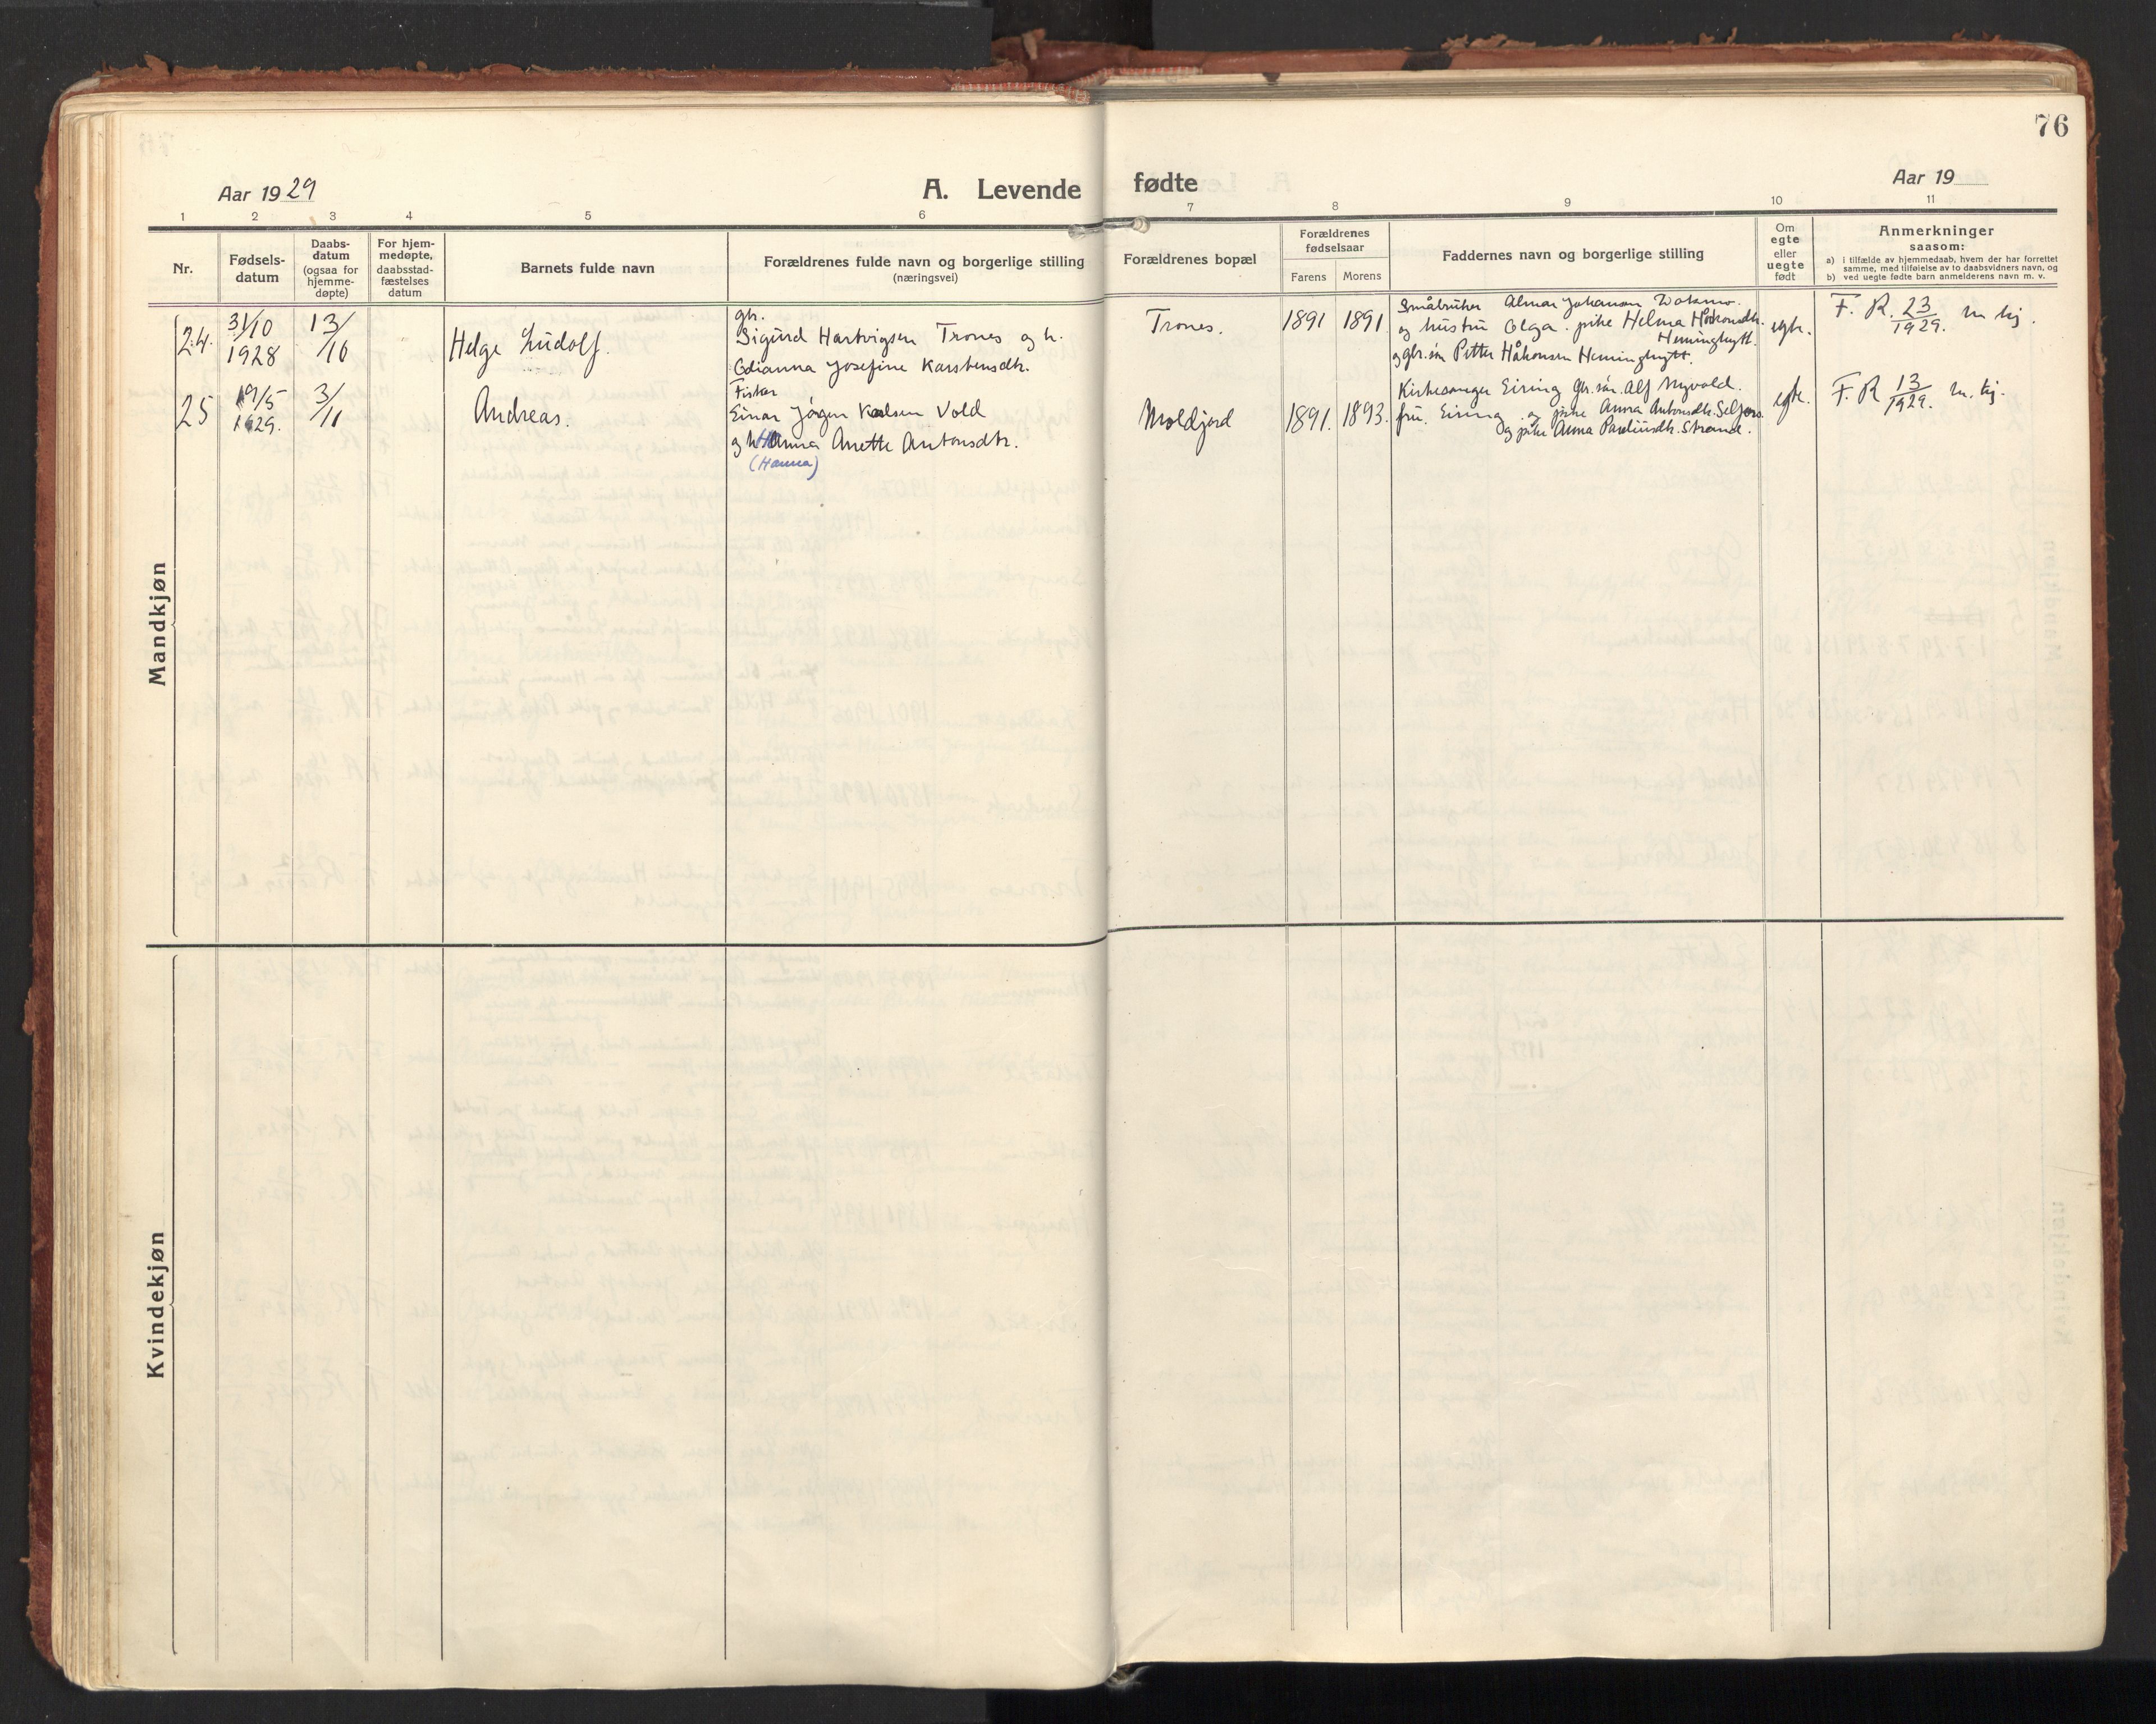 76
Aar 1929
A. Levende fødte
Aar 19
1 2 3 4 5 6 7 8 9 10 11
Nr.
Fødsels-
datum
Daabs-
datum
(ogsaa for
hjemme-
døpte)
For hjem-
medøpte,
daabsstad-
fæstelses
datum
Barnets fulde navn
Forældrenes fulde navn og borgerlige stilling
(næringsvei)
Forældrenes bopæl
Forældrenes
fødselsaar
Farens Morens
Faddernes navn og borgerlige stilling
Om
egte
eller
uegte
født
Anmerkninger
saasom:
a) i tilfælde av hjemmedaab, hvem der har forrettet
samme, med tilføielse av to daabsvidners navn, og
b) ved uegte fødte barn anmelderens navn m. v.
Mandkjøn
24.
31/10
1928
13/
/10
Helge Ludolf.
gbr.
Sigurd Hartvigsen Trones og h.
Odianna Josefine Karstensdtr.
Trones.
1891 1891
Småbruker Almar Johansen
og hustru Olga. pike Helma Håkonsdtr.
Hemminghytt.
og gbr. søn Petter Håkonsen Hemminghytt.
egte.
F. R. 23/1929. m. lij.
25
19/5
1929.
3/
/11
Andreas.
Fisker
Einar Jörgen Karlsen Vold
og h. Hanna Anette Antonsdtr.
(Hanna)
Moldjord
1891. 1893.
Kirkesanger Eining Gbr. søn. Alf Nyvold.
fru. Eining. og pike Anna Antonsdtr. Seljeås.
og pike Anna Paulinsdtr. Strand.
egte.
F. R 13/1929. m. lij.
Kvindekjøn